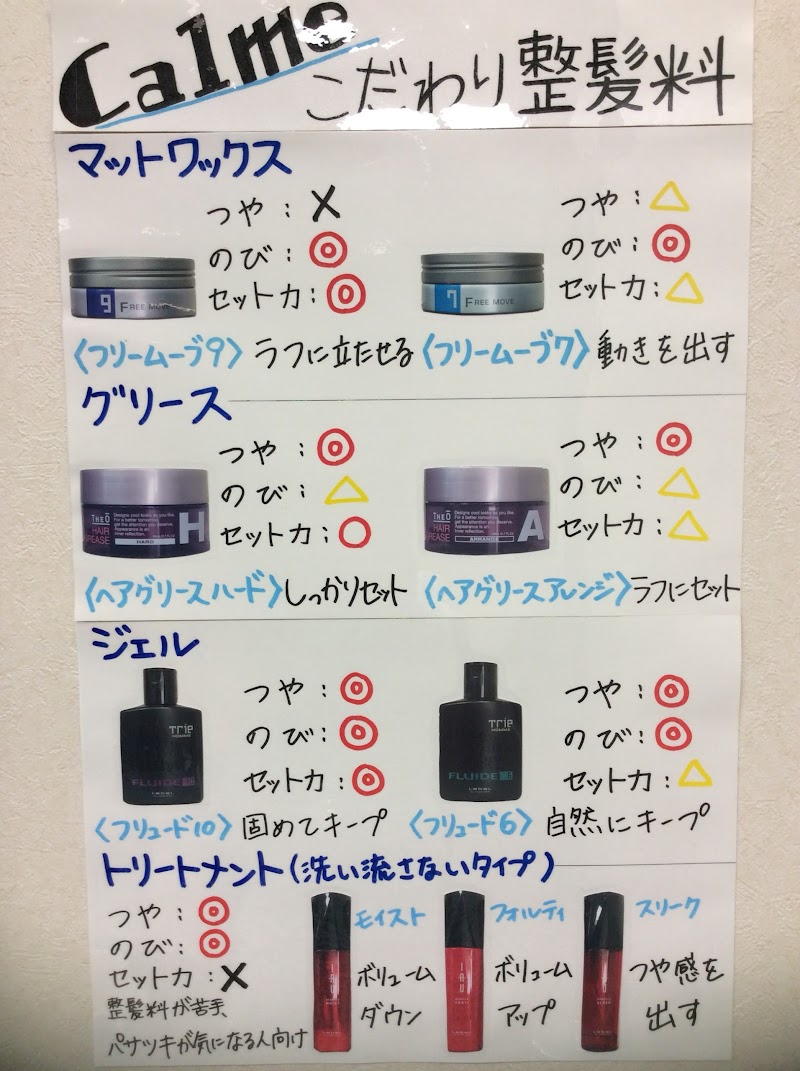 Calmo
こだわり整髪料
マットワックス
つや：×
のび：◎
セット力：◎
9 FREE MOVE
〈フリームーブ9〉ラフに立たせる
つや：△
のび：◎
セット力：△
7 FREE MOVE
〈フリームーブ7〉動きを出す
グリース
つや：◎
のび：△
セット力：○
THEO
HAIR
GREASE
Designs cool looks as you like.
For a better tomorrow,
get the attention you deserve.
Appearance is an
inner reflection.
HARD
H
〈ヘアグリースハード〉しっかりセット
つや：◎
のび：△
セット力：△
THEO
HAIR
GREASE
Designs cool looks as you like.
For a better tomorrow,
get the attention you deserve.
Appearance is an
inner reflection.
ARRANGE
A
〈ヘアグリースアレンジ〉ラフにセット
ジェル
つや：◎
のび：◎
セット力：◎
Trie
HOMME
FLUIDE
LebeL
〈フリュード10〉固めてキープ
つや：◎
のび：◎
セット力：△
Trie
HOMME
FLUIDE
LebeL
〈フリュード6〉自然にキープ
トリートメント（洗い流さないタイプ）
つや：◎
のび：◎
セット力：×
整髪料が苦手、
パサツキが気になる人向け
モイスト
ボリューム
ダウン
IAU
フォルティ
ボリューム
アップ
スリーク
つや感を
出す